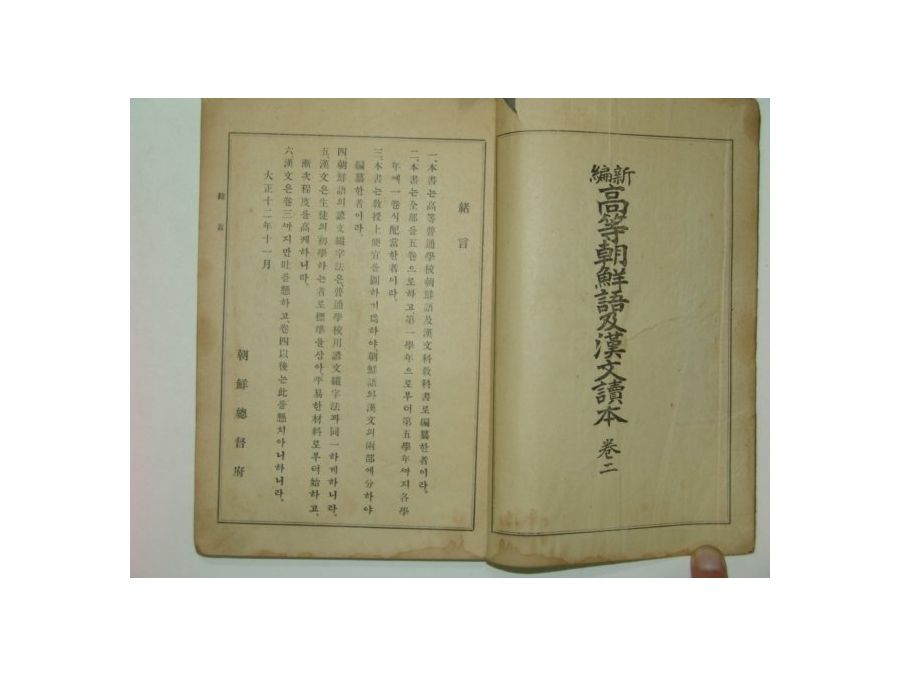 新編
高等朝鮮語及漢文讀本 卷二
緖言
一、本書는高等普通學校朝鮮語及漢文科敎科書로編纂한者이라、
二、本書는全部를五卷으로하고、第一學年으로부터第五學年ᄭᅡ지各學
年에一卷式配當한者이라、
三、本書는敎授上便宜를圖하기爲하야、朝鮮語와漢文의兩部에分하야
編纂한者이라、
四朝鮮語의諺文綴字法은、普通學校用諺文綴字法과同一하게하니라、
五漢文은生徒의初學하는者로標準을삼아、平易한材料로부터始하고、
漸次程度를高케하니라、
六漢文은卷三ᄭᅡ지만吐를懸하고、卷四以後는此를懸치아니하니라、
大正十二年十一月
朝鮮總督府
緖言